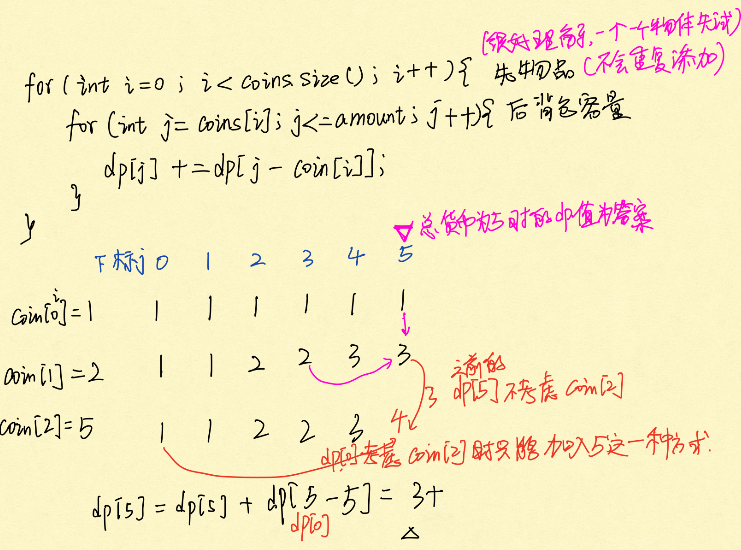 (很好理解,一个个物体先试)
for (int i=0 ; i < coins.size() ; i++){ 先物品 (不会重复添加)
for (int j= coins[i]; j<=amount; j++){ 后背包容量
dp[j] += dp[j - coin[i]];
}
}
总货币为5时的dp值为答案
下标j 0 1 2 3 4 5
i
coin[0]=1 1 1 1 1 1 1
coin[1]=2 1 1 2 2 3 3
3 之前的
dp[5] 不考虑 coin[2]
coin[2]=5 1 1 2 2 3 4
dp[0]考虑 coin[2] 时只能加入5这一种方式.
dp[5] = dp[5] + dp[5-5] = 3+
dp[0]